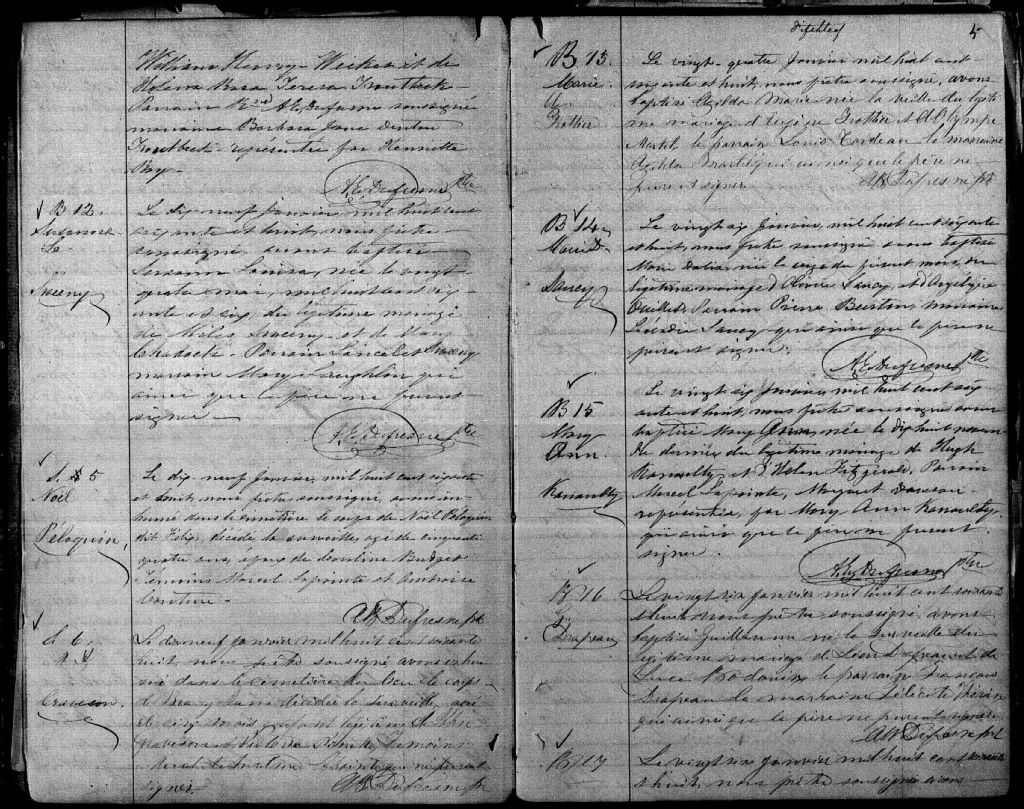 William Henry Weekes et de
Helena Rosa Teresa Troutbeck
Parrain A.E. Dufresne soussigné
marraine Barbara Jane Denton
Troutbeck representée par Hennette
Roy.
A.E. Dufresne Ptre
B 12
Susanna
L.
Sweeny
Le dix-neuf Janvier, mil huit cent
soixante et huit, nous prêtre
soussigné, avons baptisé
Susann Louisa, née le vingt
quatre mai, mil huit cent soix
ante et six, du légitime mariage
de Miles Sweeny et de Mary
Chadock. Parrain Lancelot Sweeny
marraine Mary Laughlin qui
ainsi que le père ne purent
signer
A.E. Dufresne Ptre
S. 5
Noël
Péloquin,
Le dix-neuf Janvier, mil huit cent soixante
et huit, nous prêtre soussigné, avons in-
humé dans le cimetière le corps de Noël Péloquin
dit Felix, décédé la surveille, agé de cinquante
quatre ans, époux de Pauline Budget
Témoins Marcel Lapointe et Ambroise
Couture.
A.E. Dufresne pt
S. 6.
Graveson.
Le dixneuf janvier mil huit cent soixante
huit nous prêtre soussigné avons inhu
mé dans le cimetière du lieu le corps
de décédé la surveille, agé
de cinq mois, enfant légitime de John
Graveson et Témoins
Couture Lapointe qui ne purent
signer.
A.E. Dufresne pt
5
B 13.
Marie
A.
Frothier
Le vingt-quatre Janvier mil huit cent
soixante et huit, nous prêtre soussigné, avons
baptisé Agilda Marie née la veille du légiti
me mariage d'Eugène Frothier et d'Olympe
Martel, le parrain Louis Cordeau la marraine
Agilda Martel qui ainsi que le père ne
purent signer
A.E. Dufresne pt
B 14
Marie D.
Saucy
Le vingt six Janvier, mil huit cent soixante
et huit, nous prêtre soussigné avons baptisé
Marie Dalia, née le onze du présent mois du
légitime mariage d'Olivier Saucy et d'Angelique
Ouillet. Parrain Pierre Burton marraine
Léocadie Saucy qui ainsi que le père ne
purent signer.
A.E. Dufresne Ptre
B 15
Mary
Ann.
Kanaulty
Le vingt six Janvier, mil huit cent soix
ante et huit, nous prêtre soussigné avons
baptisé Mary Ann, née le dix huit novem
bre dernier du légitime mariage de Hugh
Kanaulty, et d'Helen Fitzgerald, Parrain
Marcel Lapointe, Margaret Dawson
representée, par Mary Ann Kanaulty,
qui ainsi que le père ne purent
signer.
A.E. Dufresne Ptre
B 16
G. Drapeau
Le vingt six janvier mil huit cent soixante
et huit nous prêtre soussigné avons
baptisé Guillaume né la surveille du
légitime mariage de Léon Drapeau et de
Luce Brodeur le parrain François
Drapeau la marraine Félicité
qui ainsi que le père ne purent signer
A.E. Dufresne pt
B 17
Le vingt six janvier mil huit cent soixante
et huit, nous prêtre soussigné avons